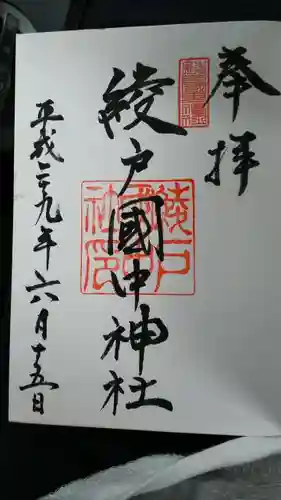 奉拝
綾戸國中神社
綾戸國中神社印
平成二十九年六月十五日